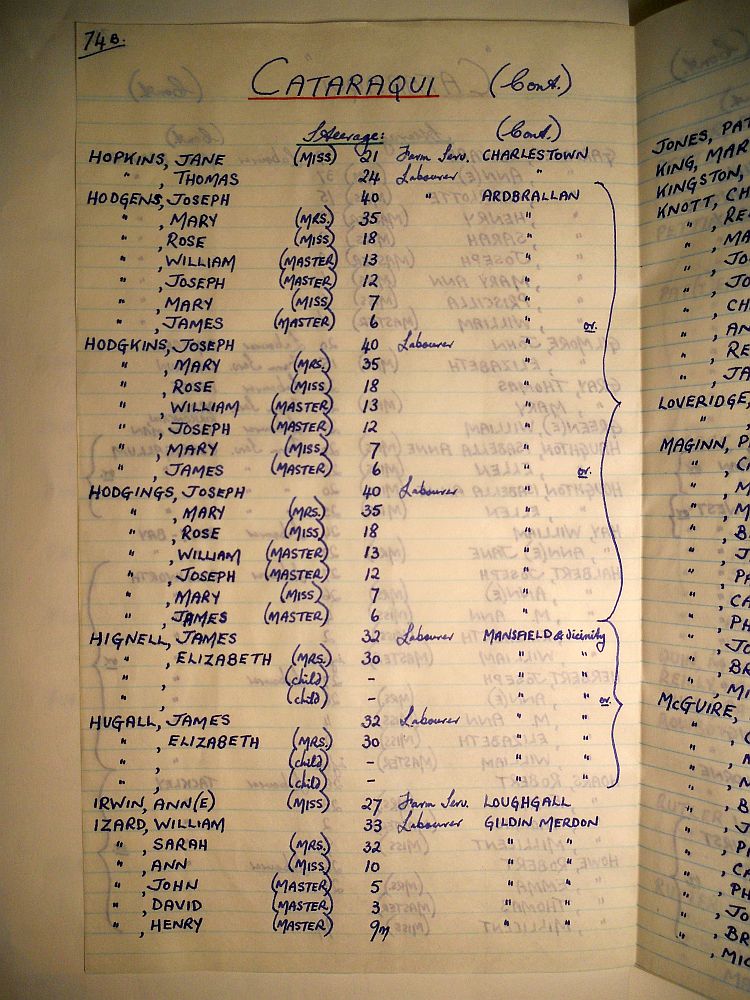 74B.
CATARAQUI (Cont.)
Steerage: (Cont.)
HOPKINS, JANE (MISS) 21 Farm Serv. CHARLESTOWN
" , THOMAS 24 Labourer "
HODGENS, JOSEPH 40 " ARDBRALLAN
" , MARY (MRS.) 35 "
" , ROSE (MISS) 18 "
" , WILLIAM (MASTER) 13 "
" , JOSEPH (MASTER) 12 "
" , MARY (MISS) 7 "
" , JAMES (MASTER) 6 " or.
HODGKINS, JOSEPH 40 Labourer "
" , MARY (MRS.) 35 "
" , ROSE (MISS) 18 "
" , WILLIAM (MASTER) 13 "
" , JOSEPH (MASTER) 12 "
" , MARY (MISS) 7 "
" , JAMES (MASTER) 6 " or.
HODGINGS, JOSEPH 40 Labourer "
" , MARY (MRS.) 35 "
" , ROSE (MISS) 18 "
" , WILLIAM (MASTER) 13 "
" , JOSEPH (MASTER) 12 "
" , MARY (MISS) 7 "
" , JAMES (MASTER) 6 "
HIGNELL, JAMES 32 Labourer MANSAELD & Vicinity
" , ELIZABETH (MRS.) 30 " "
" , (child) - " "
" , (child) - " " or.
HUGALL, JAMES 32 Labourer " "
" , ELIZABETH (MRS.) 30 " "
" , (child) - " "
" , (child) - " "
IRWIN, ANN(E) (MISS) 27 Farm Serv. LOUGHGALL
IZARD, WILLIAM 33 Labourer GILDIN MERDON
" , SARAH (MRS.) 32 " "
" , ANN (MISS) 10 " "
" , JOHN (MASTER) 5 " "
" , DAVID (MASTER) 3 " "
" , HENRY (MASTER) 9m " "
JONES, PAT
KING, MAR
KINGSTON,
KNOTT, CH
" , RE
" , MA
" , JO
" , JO
" , CH
" , AN
" , RE
" , JA
LOVERIDGE,
" ,
MAGINN, P
" , CA
" , M
" , M
" , B
" , J
" , PA
" , CA
" , PH
" , JO
" , BR
" , MI
McGUIRE,
" , C
" , M
" , M
" , B
" , J
" , PA
" , CA
" , PH
" , JO
" , BR
" , MIC